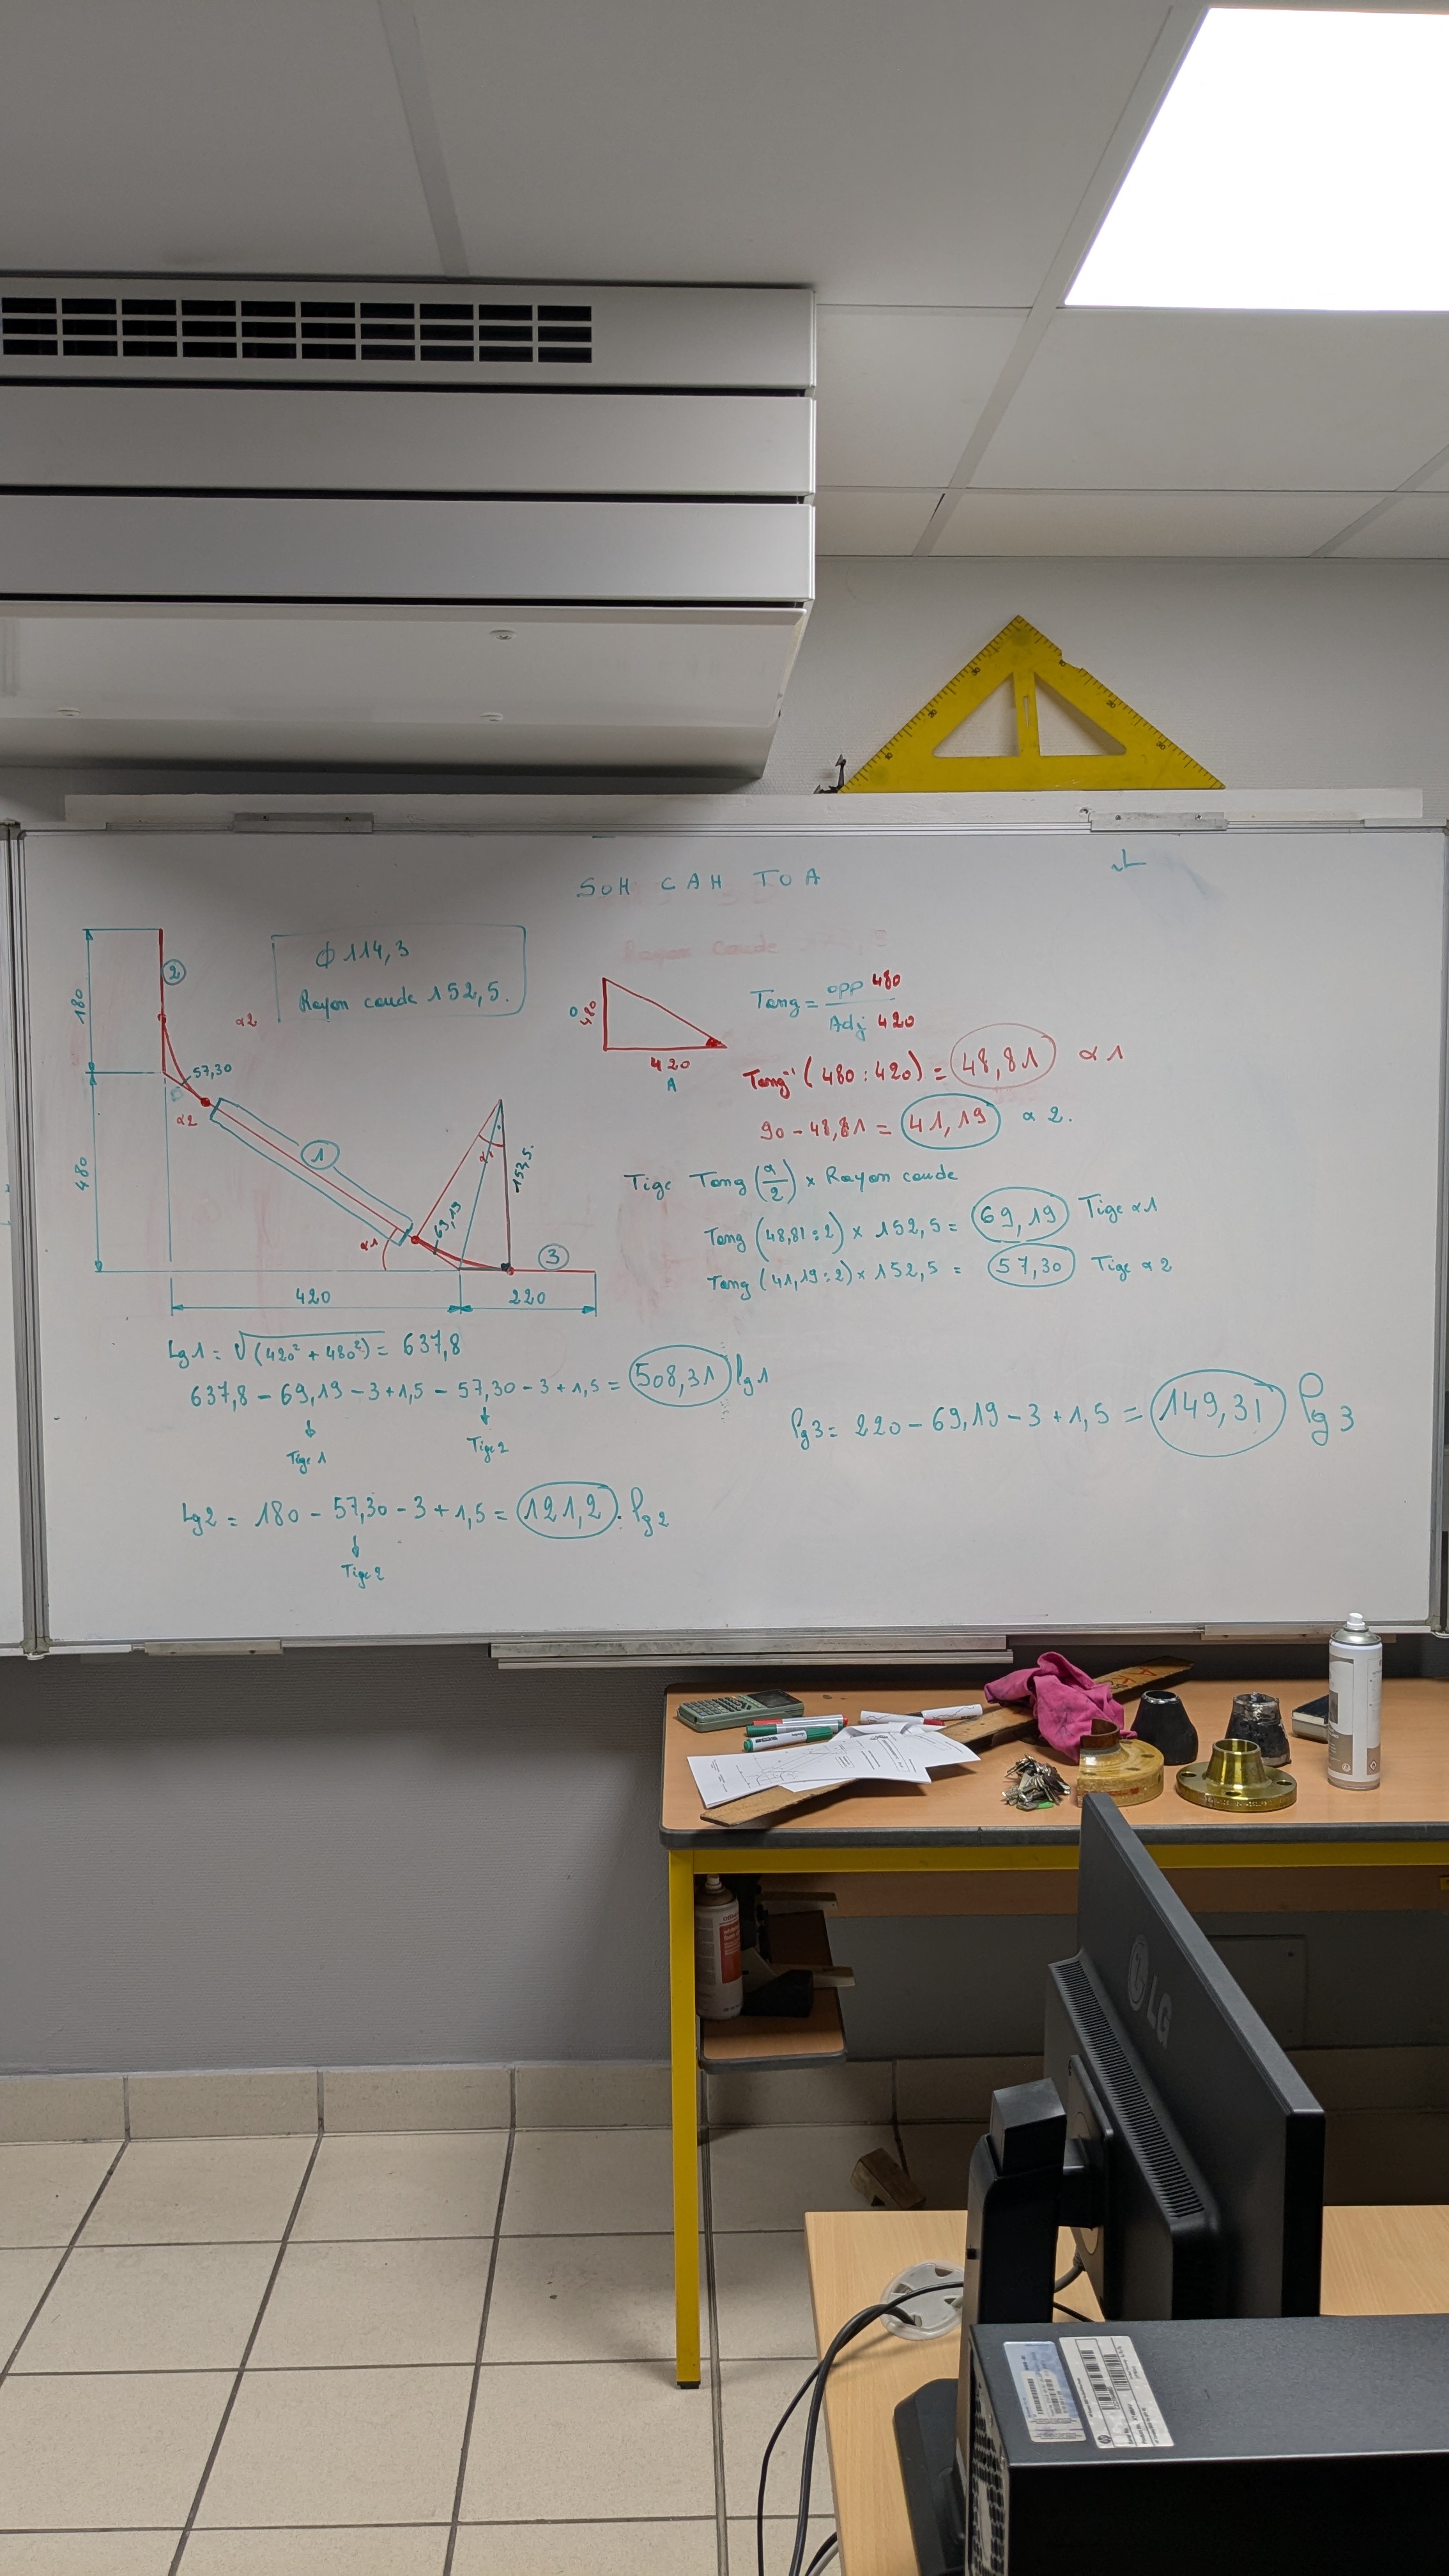 SOH CAH TOA
Φ 114,3
Rayon coude 152,5.
2
180
α2
57,30
α2
480
1
α1
69,19
α1
152,5.
3
420
220
O
480
420
A
Tang = opp 480
Adj 420
Tang⁻¹ (480 : 420) = 48,81 α1
90 - 48,81 = 41,19 α 2.
Tige Tang (α/2) × Rayon coude
Tang (48,81 : 2) × 152,5 = 69,19 Tige α1
Tang (41,19 : 2) × 152,5 = 57,30 Tige α 2
Lg1 = √(420² + 480²) = 637,8
637,8 - 69,19 - 3 + 1,5 - 57,30 - 3 + 1,5 = 508,31 lg1
↓ ↓
Tige 1 Tige 2
Lg2 = 180 - 57,30 - 3 + 1,5 = 121,2. lg2
↓
Tige 2
lg3 = 220 - 69,19 - 3 + 1,5 = 149,31 lg3
LG